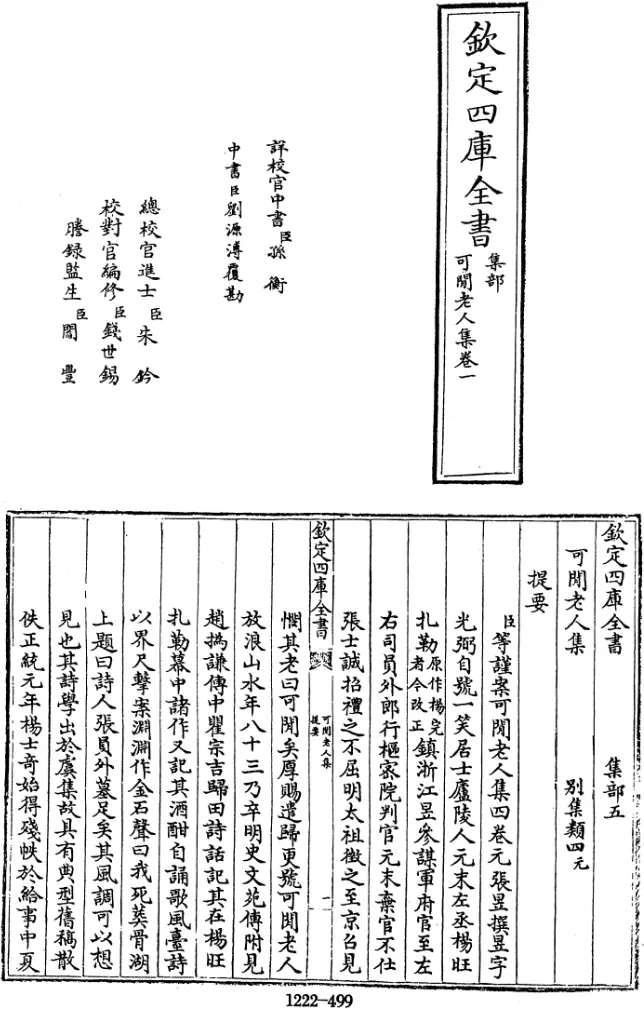 欽定四庫全書
集部
可閒老人集卷一
詳校官中書臣孫衡
中書臣劉源溥覆勘
總校官進士臣朱鈐
校對官編修臣錢世錫
謄錄監生臣閻豐
欽定四庫全書 集部五
可閒老人集 別集類四元
提要
臣等謹案可閒老人集四卷元張昱撰昱字
光弼自號一笑居士廬陵人元末左丞楊旺
扎勒原作楊完者今改正鎮浙江昱參謀軍府官至左
右司員外郎行樞密院判官元末棄官不仕
張士誠招禮之不屈明太祖徵之至京召見
欽定四庫全書
可閒老人集
提要
一
憫其老曰可閒矣厚賜遣歸更號可閒老人
放浪山水年八十三乃卒明史文苑傳附見
趙撝謙傳中瞿宗吉歸田詩話記其在楊旺
扎勒幕中諸作又記其酒酣自誦歌風臺詩
以界尺擊案淵淵作金石聲曰我死葬骨湖
上題曰詩人張員外墓足矣其風調可以想
見也其詩學出於虞集故具有典型舊稿散
佚正統元年楊士奇始得殘帙於給事中夏
1222-499